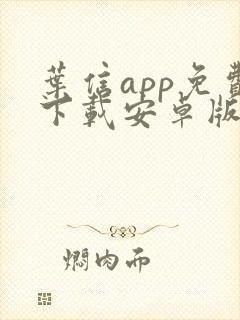 葉信app免費
下載安卓版
燜肉面